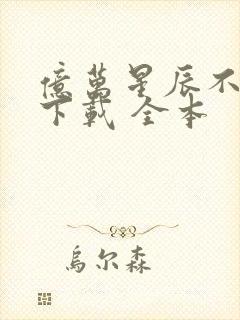 億萬星辰不
下載 全本
烏尔森